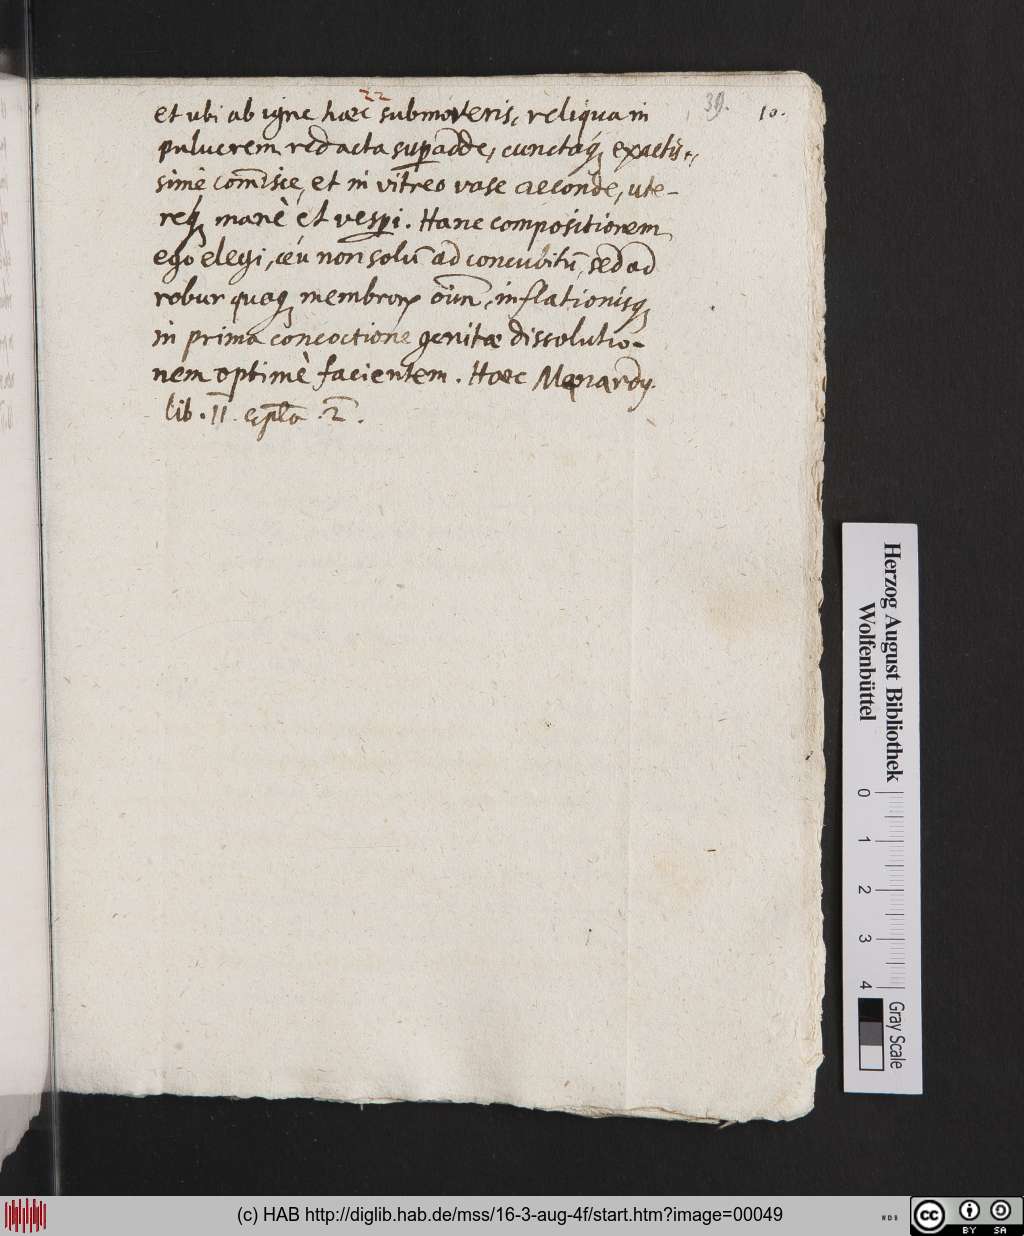 22
39.
10.
et ubi ab igne haec submoveris, reliqua in
pulverem redacta sup̱adde, cunctaq; exactis-
simè com̄isce, et in vitreo vase reconde, ute-
req; manè et vesp̱i. Hanc compositionem
ego elegi, ceu non solū ad concubitū, sed ad
robur quoq; membroꝝ oīum, inflationisq;
in prima concoctione genitæ dissolutio-
nem optimè facientem. Haec Monardꝰ
lib. II. ep̄la .2.
Herzog August Bibliothek
Wolfenbüttel
0 1 2 3 4
Gray Scale
(c) HAB http://diglib.hab.de/mss/16-3-aug-4f/start.htm?image=00049
WDB
cc
BY SA